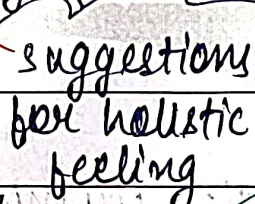 suggestions
for holistic
feeling